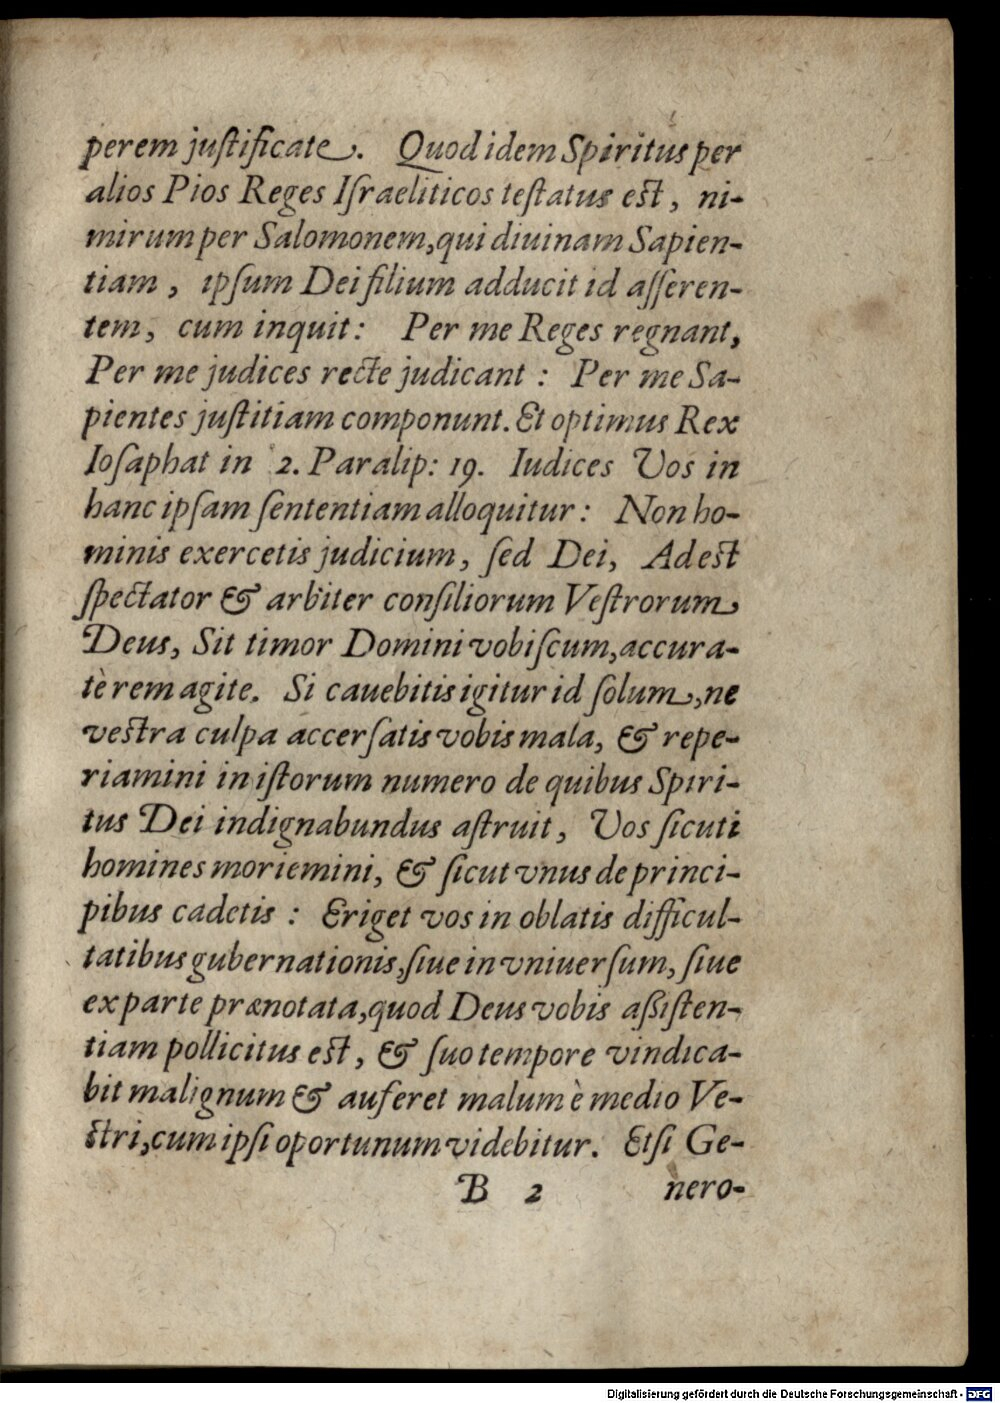 perem juſtificate. Quod idem Spiritus per
alios Pios Reges Iſraeliticos teſtatus eſt, ni-
mirum per Salomonem, qui diuinam Sapien-
tiam, ipſum Dei filium adducit id aſſeren-
tem, cum inquit: Per me Reges regnant,
Per me judices recte judicant: Per me Sa-
pientes juſtitiam componunt. Et optimus Rex
Ioſaphat in 2. Paralip: 19. Iudices Vos in
hanc ipſam ſententiam alloquitur: Non ho-
minis exercetis judicium, ſed Dei, Adeſt
ſpectator & arbiter conſiliorum Veſtrorum
Deus, Sit timor Domini vobiſcum, accura-
tè rem agite. Si cauebitis igitur id ſolum, ne
veſtra culpa accerſatis vobis mala, & repe-
riamini in iſtorum numero de quibus Spiri-
tus Dei indignabundus aſtruit, Vos ſicuti
homines moriemini, & ſicut vnus de princi-
pibus cadetis: Eriget vos in oblatis difficul-
tatibus gubernationis, ſiue in vniuerſum, ſiue
ex parte prænotata, quod Deus vobis aßiſten-
tiam pollicitus eſt, & ſuo tempore vindica-
bit malignum & auferet malum è medio Ve-
ſtri, cum ipſi oportunum videbitur. Etſi Ge-
B 2 nero-
Digitalisierung gefördert durch die Deutsche Forschungsgemeinschaft - DFG